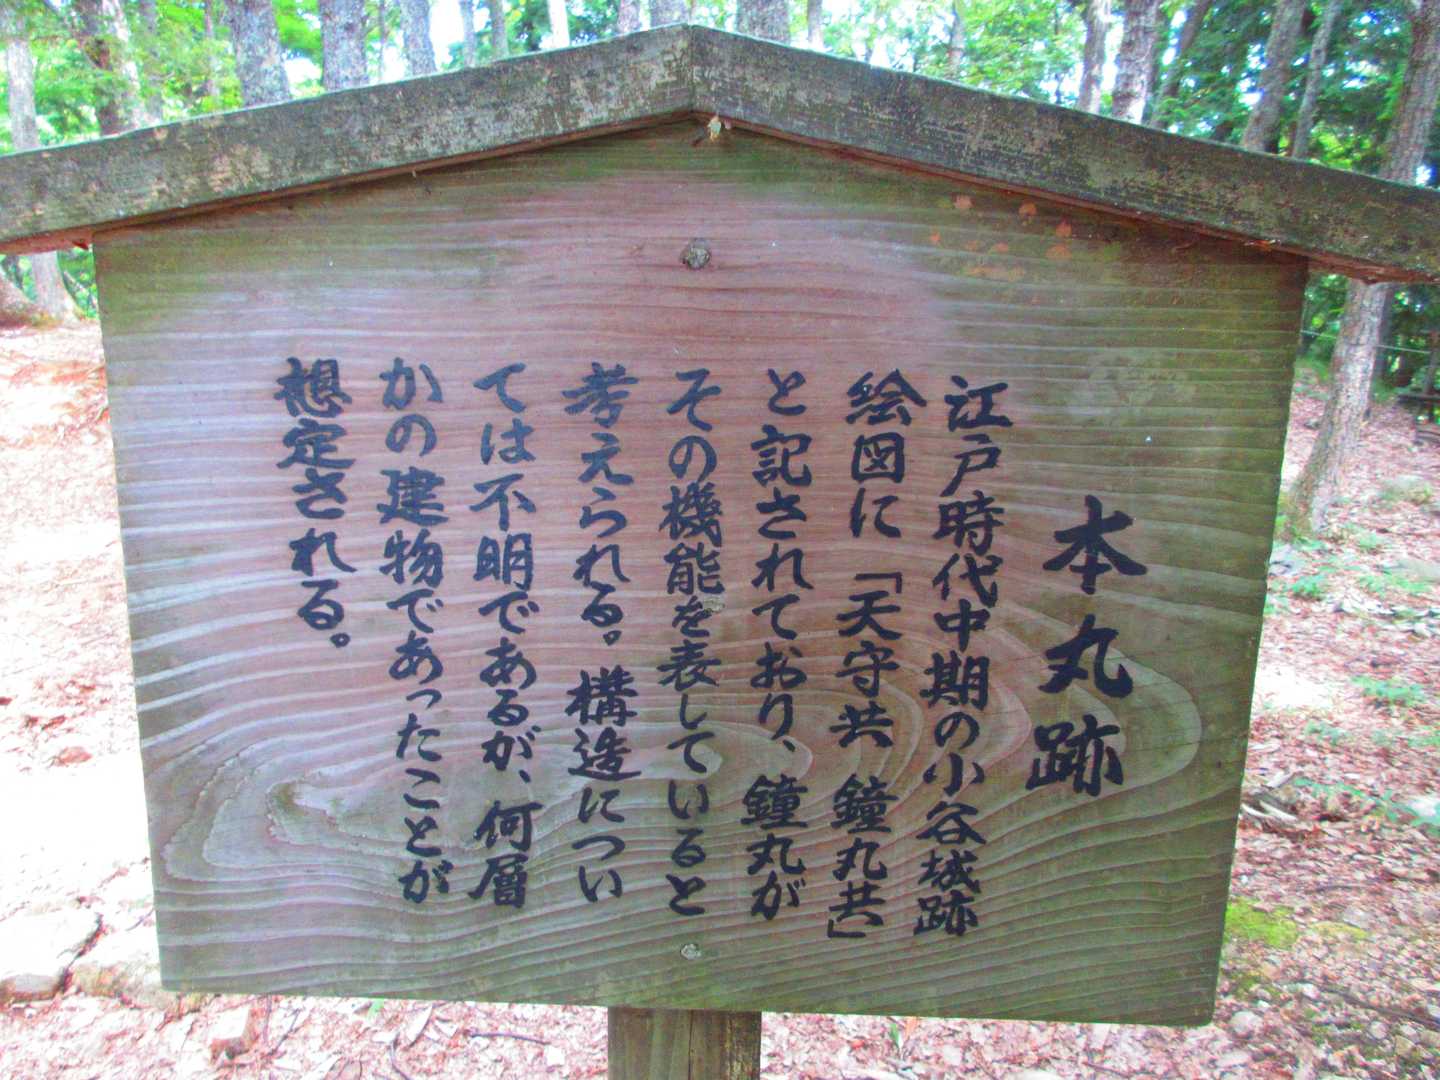 本丸跡
江戸時代中期の小谷城跡
絵図に「天守共　鐘丸共」
と記されており、鐘丸が
その機能を表していると
考えられる。構造につい
ては不明であるが、何層
かの建物であったことが
想定される。